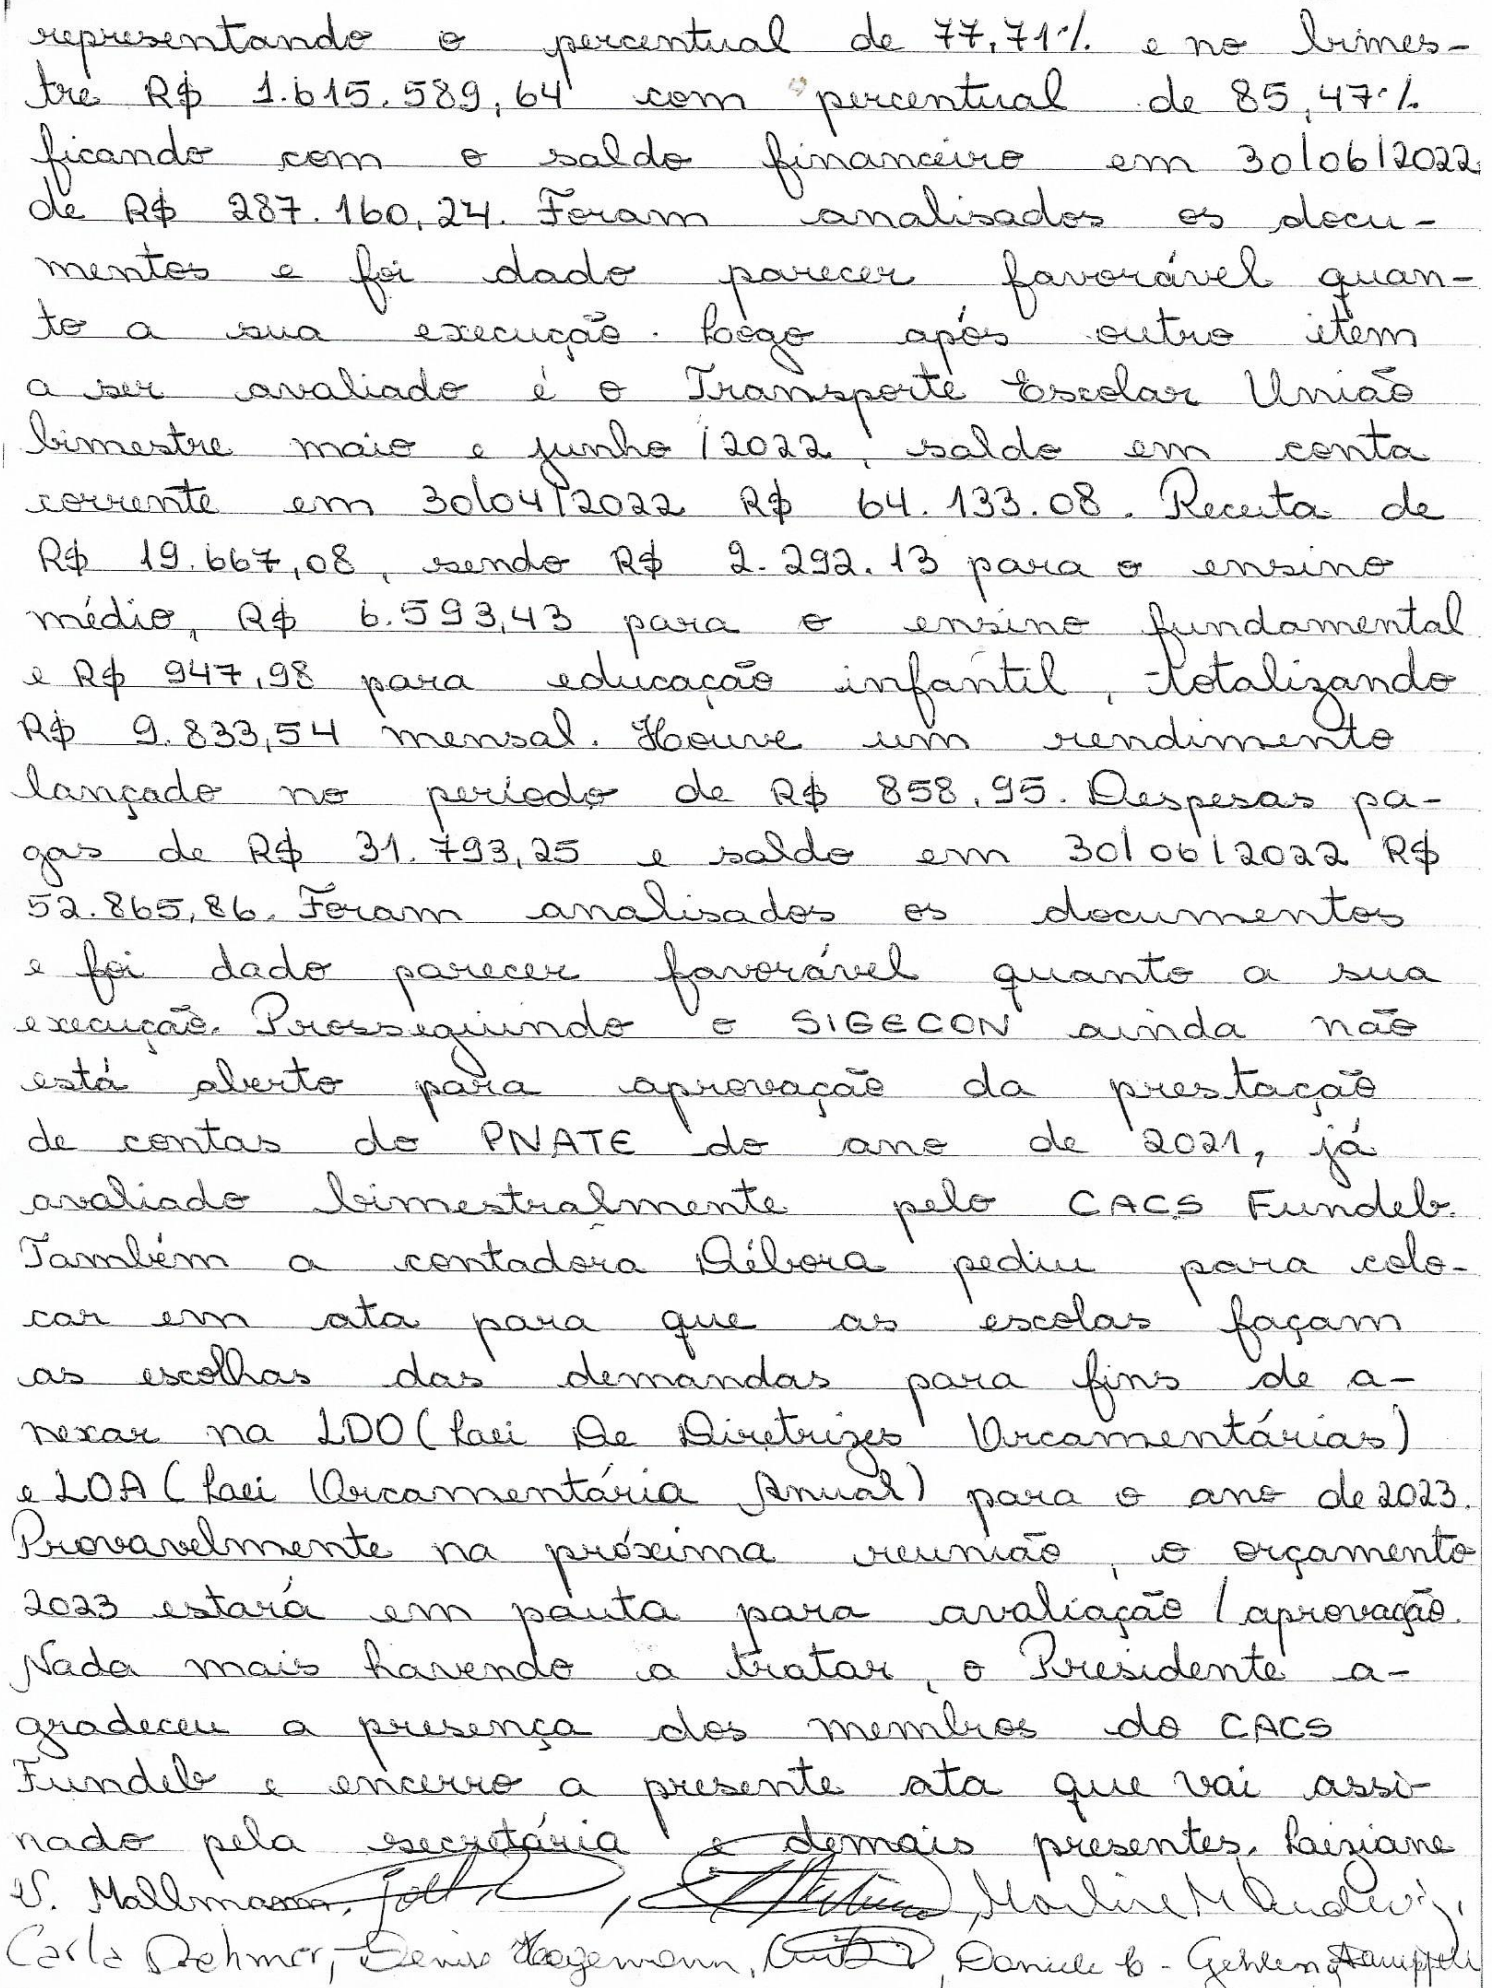 representando o percentual de 77,71% e no bimes-
tre R$ 1.615.589,64 com percentual de 85,47%
ficando com o saldo financeiro em 30/06/2022
de R$ 287.160,24. Foram analisados os docu-
mentos e foi dado parecer favorável quan-
to a sua execução. Logo após outro item
a ser avaliado é o Transporte Escolar União
bimestre maio e junho/2022, saldo em conta
corrente em 30/04/2022 R$ 64.133.08. Receita de
R$ 19.667,08, sendo R$ 2.292.13 para o ensino
médio, R$ 6.593,43 para o ensino fundamental
e R$ 947,98 para educação infantil, totalizando
R$ 9.833,54 mensal. Houve um rendimento
lançado no período de R$ 858,95. Despesas pa-
gas de R$ 31.793,25 e saldo em 30/06/2022 R$
52.865,86. Foram analisados os documentos
e foi dado parecer favorável quanto a sua
execução. Prosseguindo o SIGECON ainda não
está aberto para aprovação da prestação
de contas do PNATE do ano de 2021, já
avaliado bimestralmente pelo CACS Fundeb.
Também a contadora Débora pediu para colo-
car em ata para que as escolas façam
as escolhas das demandas para fins de a-
nexar na LDO (Lei De Diretrizes Orcamentárias)
e LOA (Lei Orcamentária Anual) para o ano de 2023.
Provavelmente na próxima reunião, o orçamento
2023 estará em pauta para avaliação/aprovação.
Nada mais havendo a tratar, o Presidente a-
gradeceu a presença dos membros do CACS
Fundeb e encerro a presente ata que vai assi-
nado pela secretária e demais presentes. Leiziane
V. Mallmann,
Carla Dehmer, Denise Hagemann, Daniele C. Gehlen